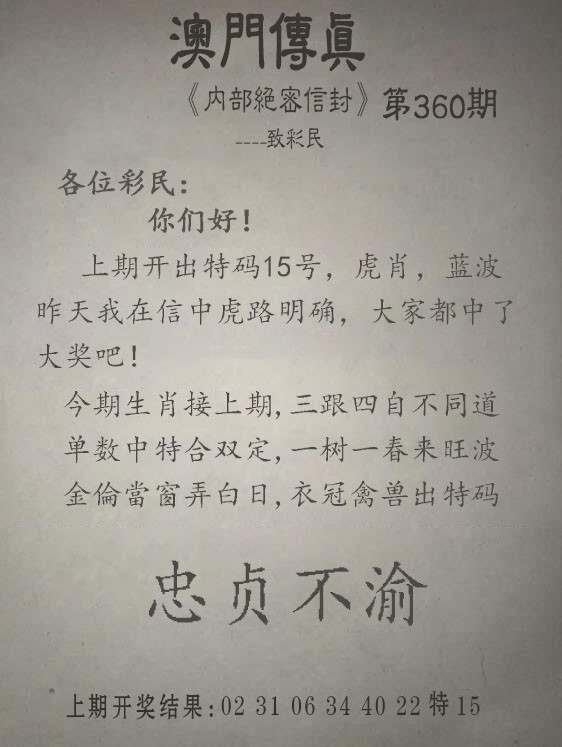 澳門傳真
《内部絕密信封》第360期
----致彩民
各位彩民：
你们好！
上期开出特码15号，虎肖，蓝波
昨天我在信中虎路明确，大家都中了
大奖吧！
今期生肖接上期,三跟四自不同道
单数中特合双定,一树一春来旺波
金倫當窗弄白日,衣冠禽兽出特码
忠贞不渝
上期开奖结果:02 31 06 34 40 22 特 15